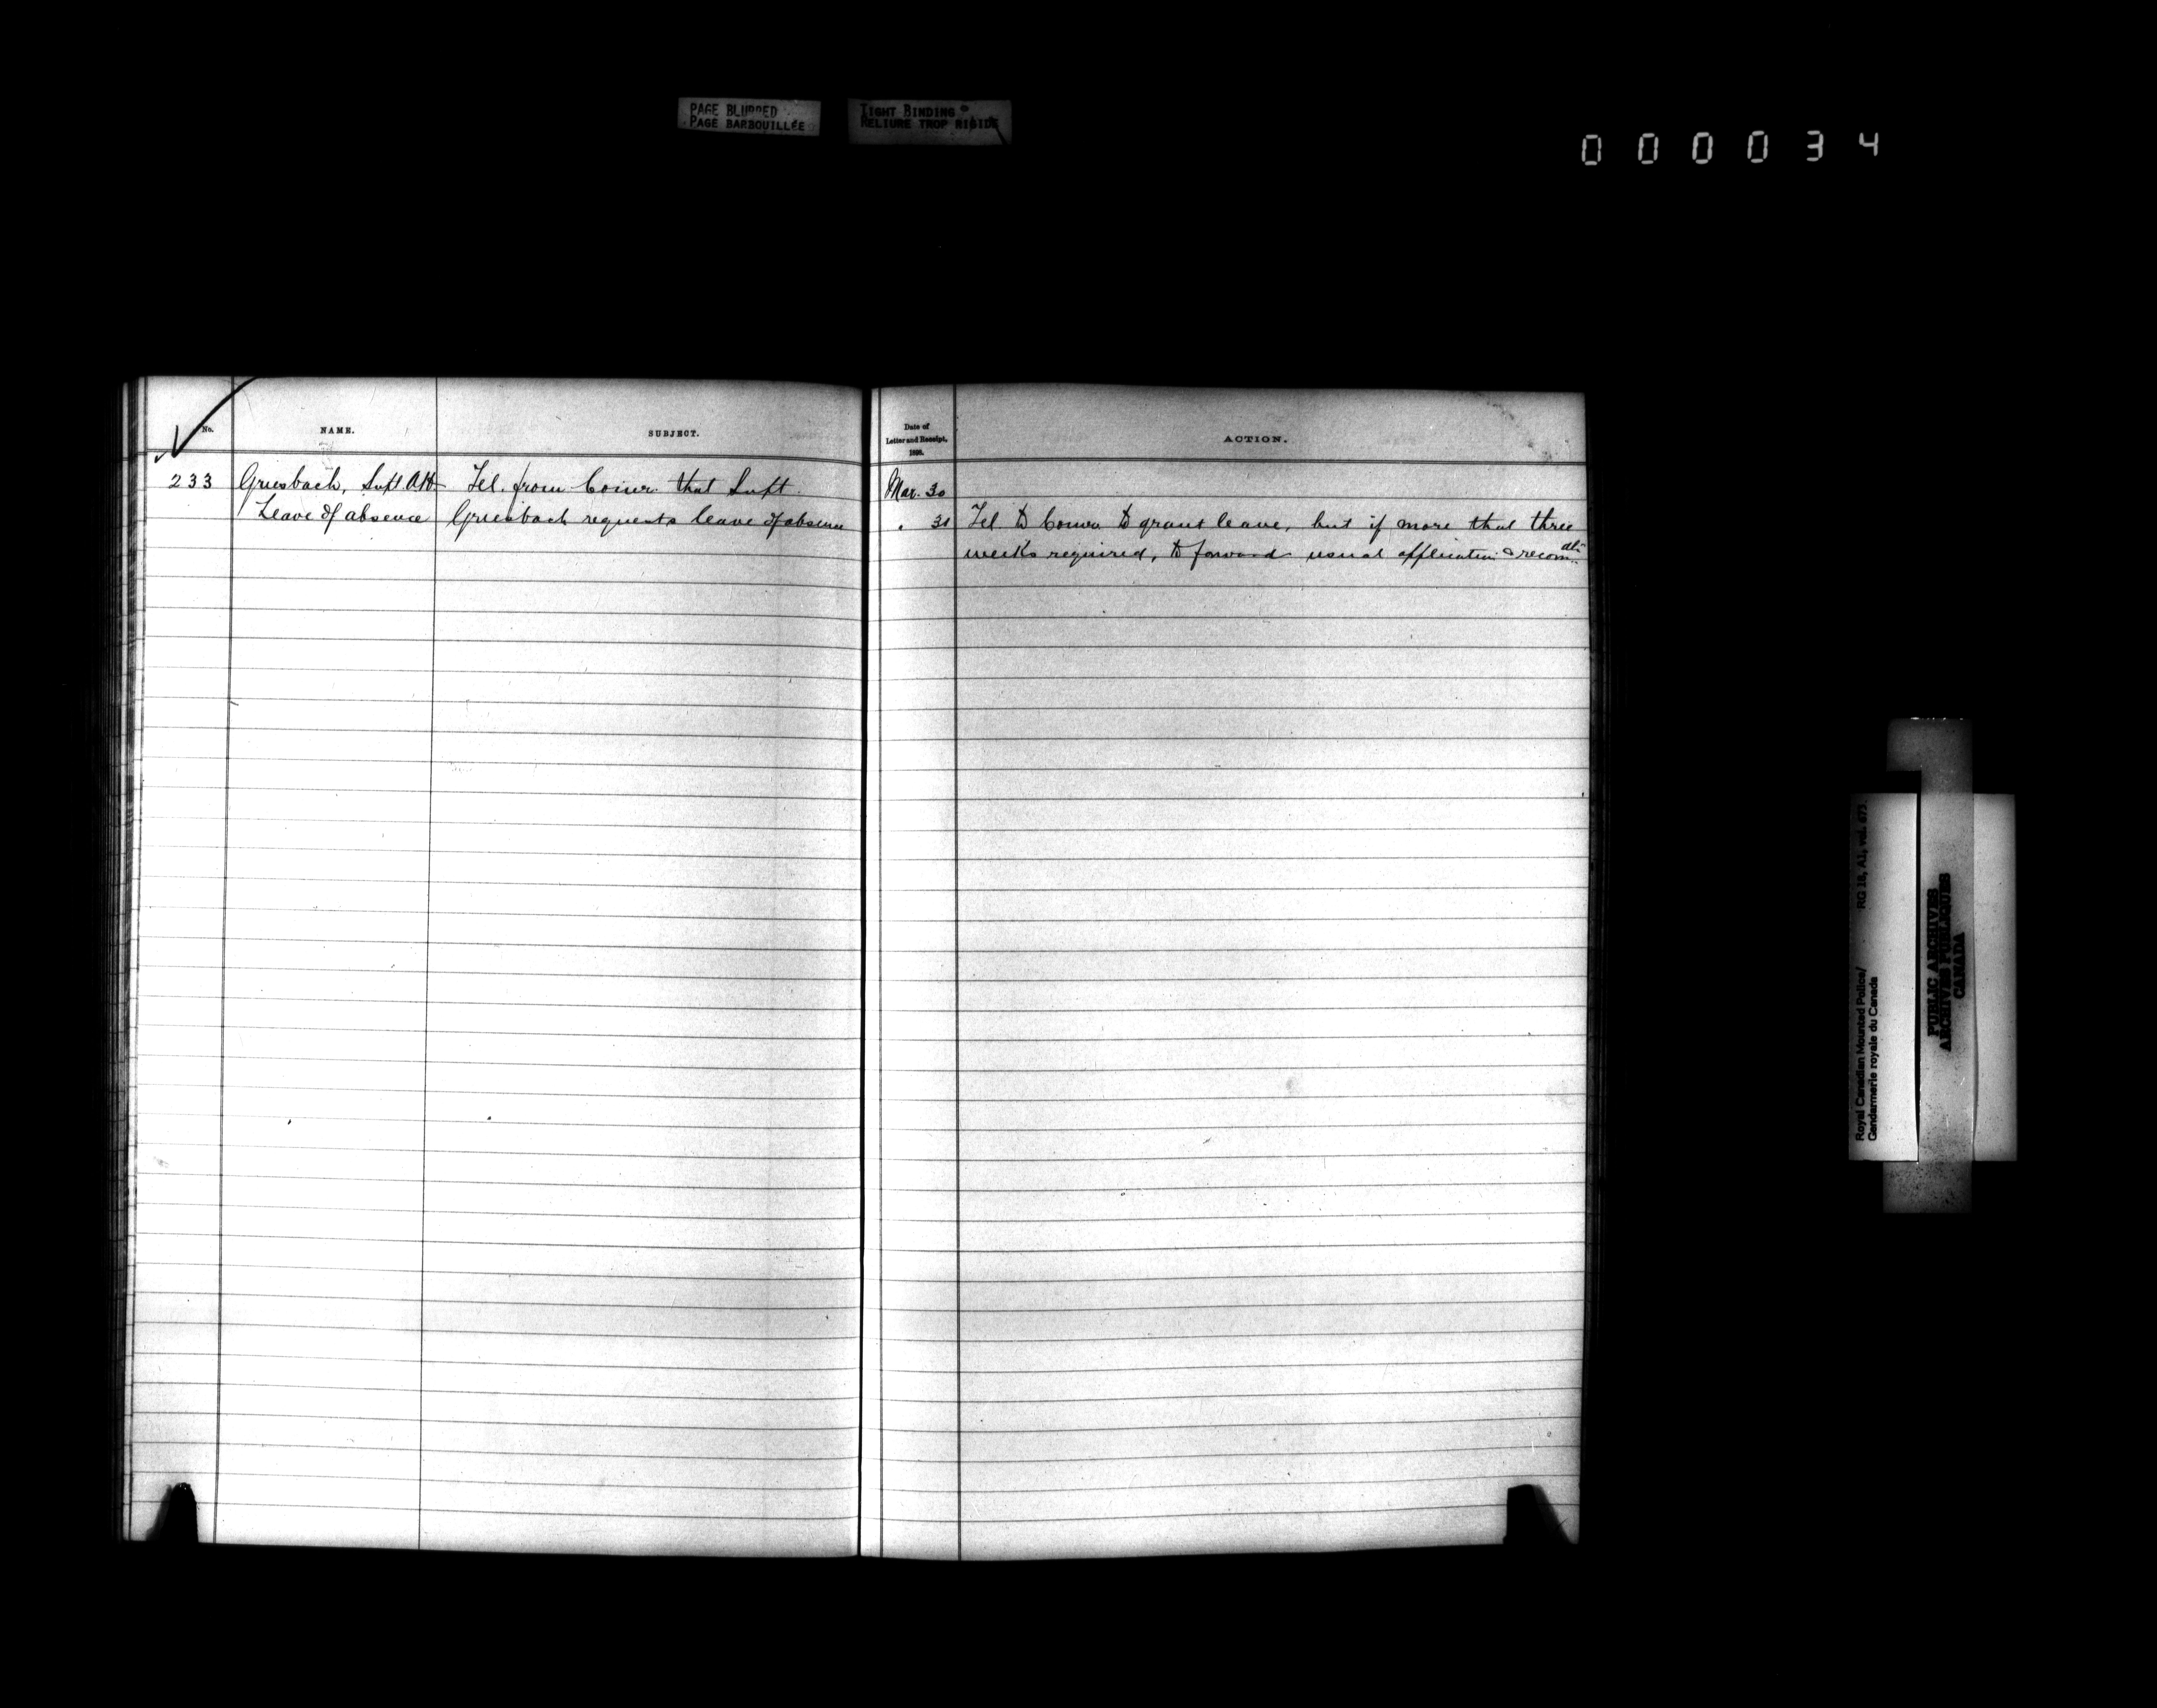 PAGE BLURRED
PAGE BARBOUILLÉE
TIGHT BINDING
RELIURE TROP RIGIDE
000034
No.
NAME.
SUBJECT.
Date of
Letter and Receipt,
1898.
ACTION.
233 Griesbach, Supt. A.H. Tel. from Comr. that Supt. Mar. 30
Leave of absence Griesbach requests leave of absence " 31 Tel to Comr to grant leave, but if more that three
weeks required, to forward usual application & recomdtn
Royal Canadian Mounted Police/ RG 18, A1, vol. 673.
Gendarmerie royale du Canada
PUBLIC ARCHIVES
ARCHIVES PUBLIQUES
CANADA